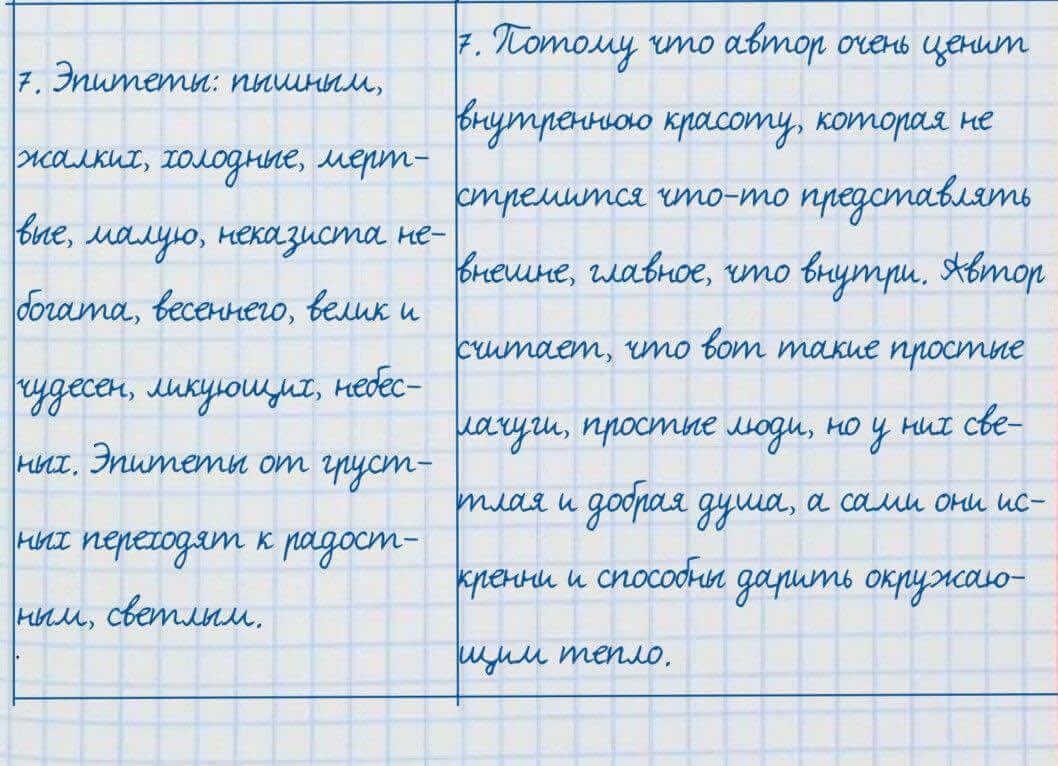 7. Эпитеты: пышным,
жалких, холодные, мерт-
вые, малую, неказиста не-
богата, весеннего, велик и
чудесен, ликующих, небес-
ных. Эпитеты от груст-
ных переходят к радост-
ным, светлым.
.
7. Потому что автор очень ценит
внутреннюю красоту, которая не
стремится что-то представлять
внешне, главное, что внутри. Автор
считает, что вот такие простые
лачуги, простые люди, но у них све-
тлая и добрая душа, а сами они ис-
кренни и способны дарить окружаю-
щим тепло.